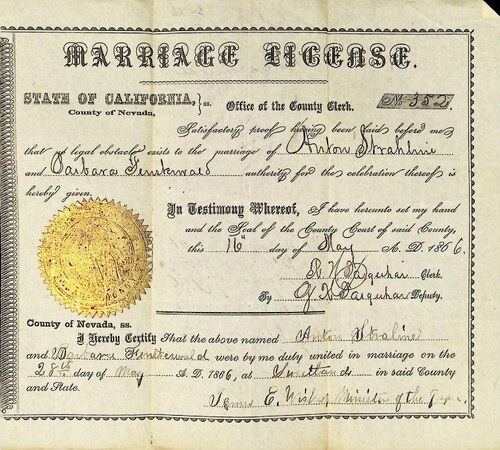 MARRIAGE LICENSE.
STATE OF CALIFORNIA, } ss. Office of the County Clerk. No. 352
County of Nevada,
Satisfactory proof having been laid before me
that no legal obstacle exists to the marriage of Anton Strahline
and Barbara authority for the celebration thereof is
hereby given.
In Testimony Whereof, I have hereunto set my hand
and the Seal of the County Court of said County,
this 16th day of May A. D. 1866.
Farquhar Clerk.
By Farquhar Deputy.
County of Nevada, ss.
I Hereby Certify That the above named Anton Straline
and Barbara were by me duly united in marriage on the
28th day of May A. D. 1866, at in said County
and State.
E. Minister of the